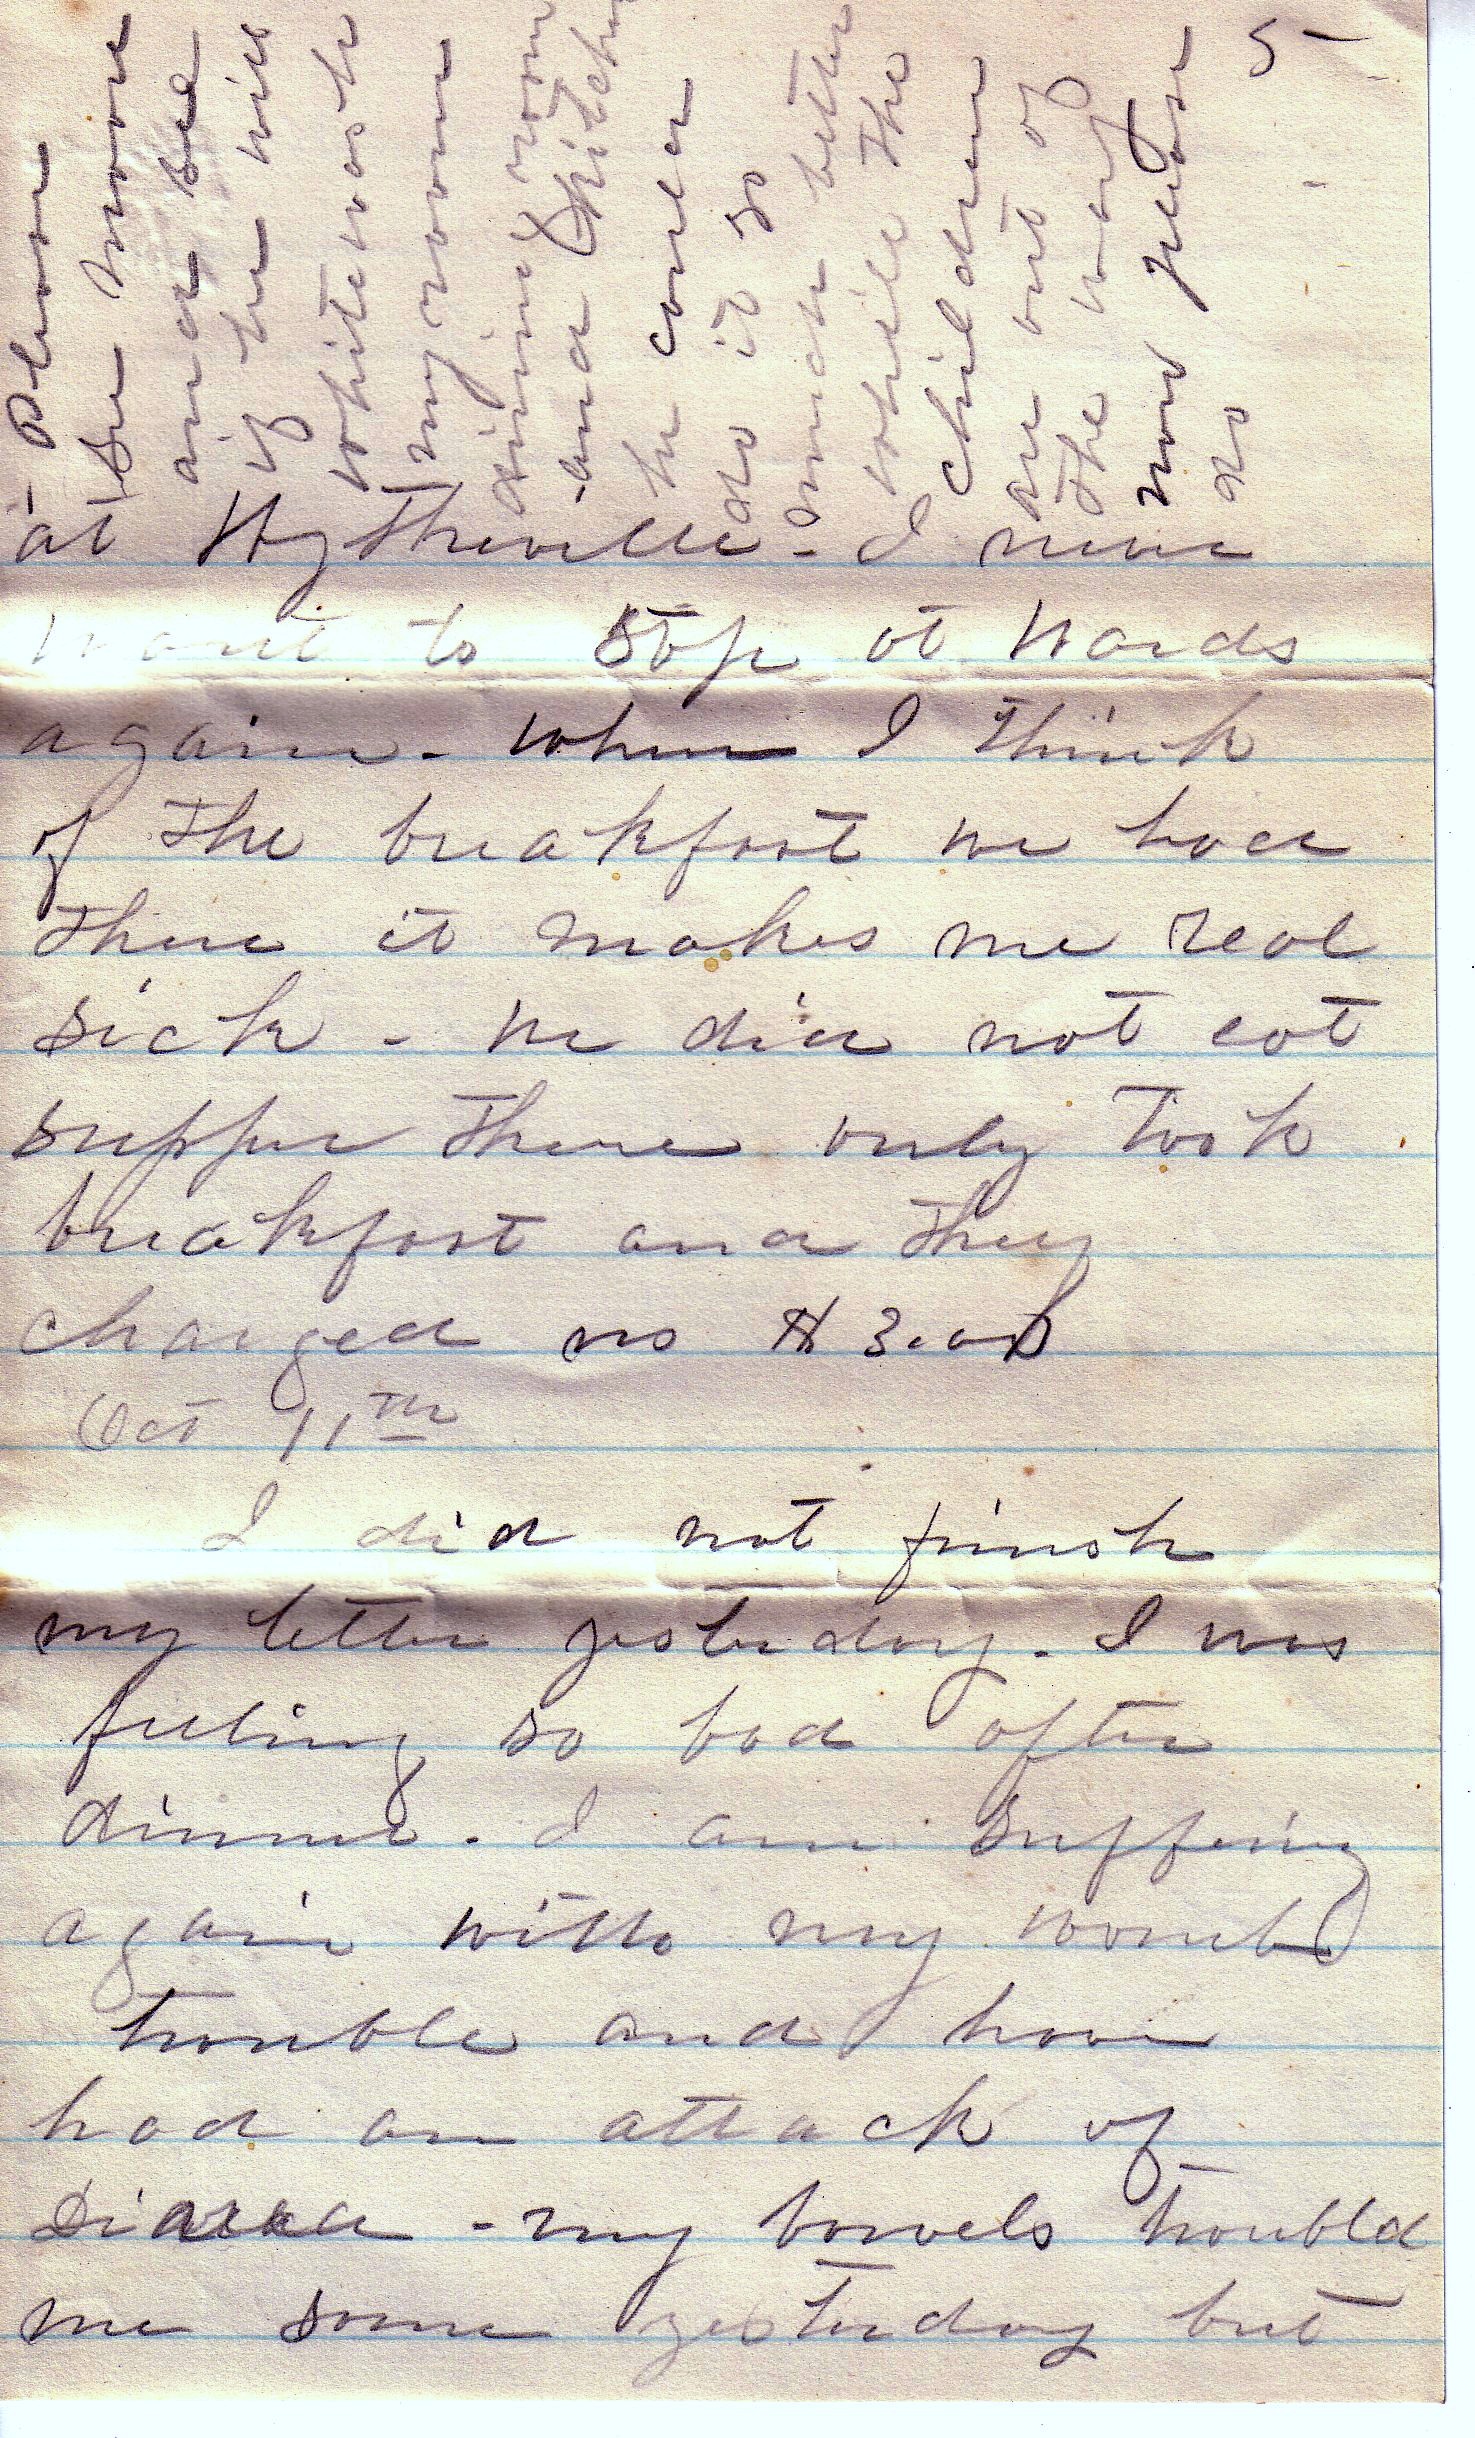 5-
at Wytheville - I never
want to stop at Wards
again - when I think
of the breakfast we had
there it makes me real
sick - We did not eat
supper there only took
breakfast and they
charged us $3.00
Oct 11th
I did not finish
my letter yesterday - I was
feeling so bad after
dinner - I am suffering
again with my womb
trouble and have
had an attack of
Diarrea - my bowels troubled
me some yesterday but
- Please
see Moore
and see
if he will
whitewash
my room
dining room
and Kitchen
he could
do it so
much better
while the
children
are out of
the way
now please
do